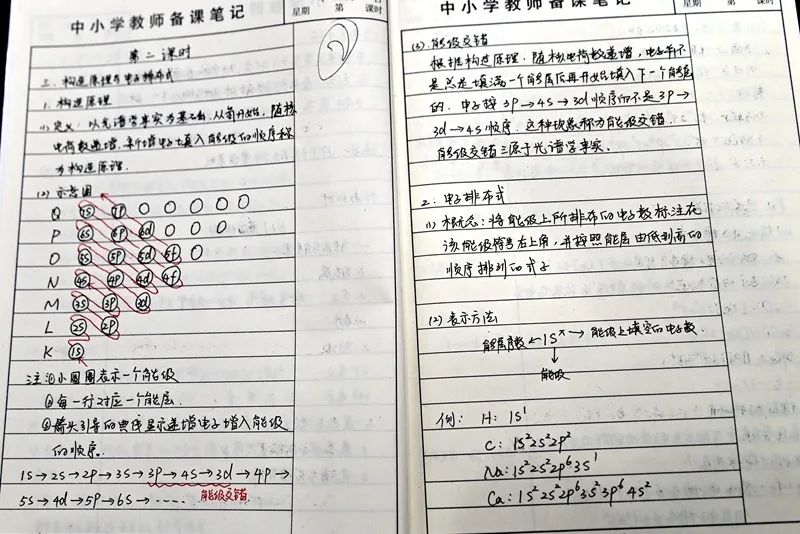 中小学教师备课笔记
星期 第 课时
第二课时
三、构造原理与电子排布式
1. 构造原理
(1) 定义：以光谱学事实为基础，从氢开始，随核
电荷数递增，新增电子填入能级的顺序称
为构造原理。
(2) 示意图
Q 7S 7P
P 6S 6P 6d
O 5S 5P 5d 5f
N 4S 4P 4d 4f
M 3S 3P 3d
L 2S 2P
K 1S
注：①小圆圈表示一个能级
②每一行对应一个能层.
③箭头引导的曲线显示递增电子填入能级
的顺序.
1S→2S→2P→3S→3P→4S→3d→4P→
5S→4d→5P→6S→……
能级交错
中小学教师备课笔记
星期 第 课时
(3). 能级交错
根据构造原理，随核电荷数递增，电子并不
是总是填满一个能层后再开始填入下一个能层
的. 电子按3P→4S→3d顺序而不是3P→
3d→4S顺序，这种现象称为能级交错.
能级交错源于光谱学事实.
2. 电子排布式
(1) 概念：将能级上所排布的电子数标注在
该能级符号右上角，并按照能层由低到高的
顺序排列的式子
(2) 表示方法
能层序数←1Sˣ→能级上填充的电子数
↓
能级
例： H: 1S¹
C: 1S²2S²2P²
Na: 1S²2S²2P⁶3S¹
Ca: 1S²2S²2P⁶3S²3P⁶4S²